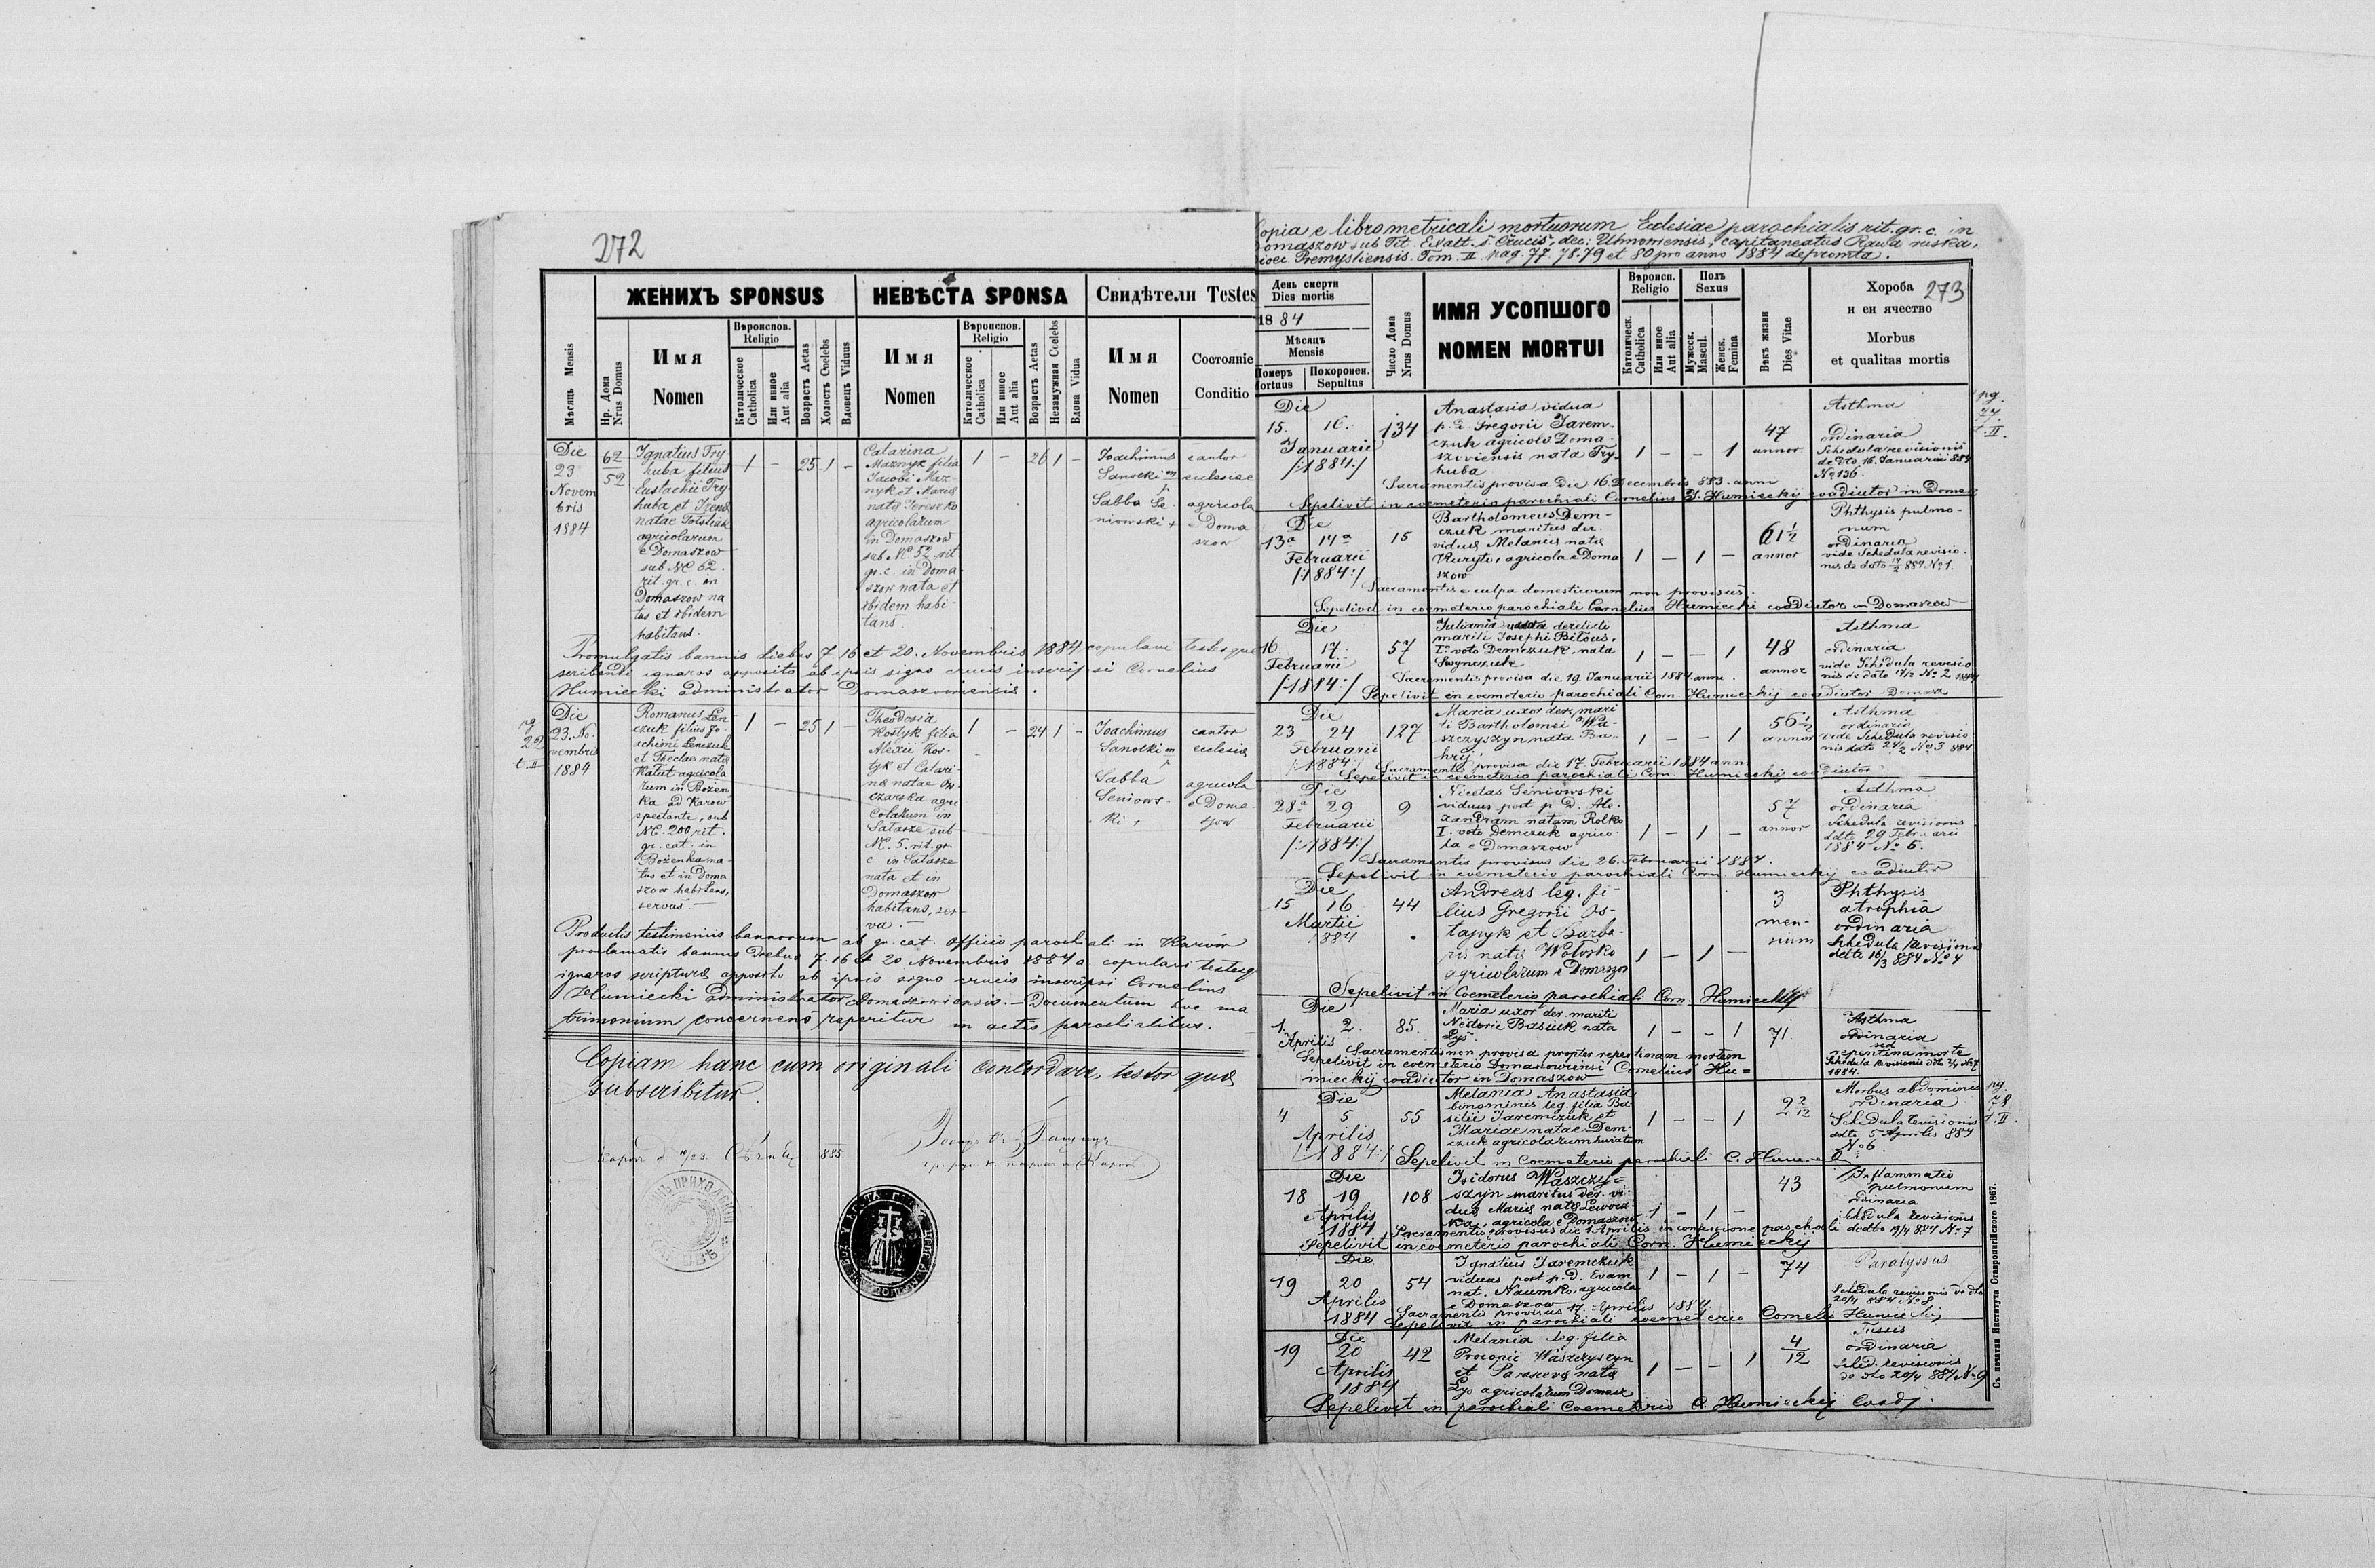 272
ЖЕНИХЪ SPONSUS
НЕВѢСТА SPONSA
Свидѣтели Testes
Мѣсяць Mensis
Нр. Дома Nrus Domus
Имя
Nomen
Вѣроиспов.
Religio
Католическое Catholica
Или иное Aut alia
Возрастъ Aetas
Холостъ Coelebs
Вдовецъ Viduus
Имя
Nomen
Вѣроиспов.
Religio
Католическое Catholica
Или иное Aut alia
Возрастъ Aetas
Незамужная Coelebs
Вдова Vidua
Имя
Nomen
Состояніе
Conditio
Die
23
Novem
bris
1884
62
52
Ignatius Try
huba filius
Eustachii Try
huba et
natae
agricolarum
e Domaszow
sub NC 62.
rit. gr. c. in
Domaszow na
tus et ibidem
habitans.
1 – 25 1 –
Catarina
Maznyk filia
Jacobi Maz-
nyk et Mariae
natae Jereszko
agricolarum
in Domaszow
sub Nc 52 rit
gr. c. in Doma
szow nata et
ibidem habi-
tans
1 – 26 1 –
Joachimus
Sanocki m
p
Sabba Se-
niowski +
cantor
ecclesiae
agricola
e Doma
szow
Promulgatis bannis diebus 7 16 et 20. Novembris 1884 copulavi testesque
scribendi ignaros apposito ab ipsis signo crucis inscripsi Cornelius
Humiecki administrator Domaszowiensis.
pg
22
t. II
Die
23. No-
vembris
1884
Romanus Len
czuk filius Jo-
achimi Lenczuk
et Theclae natae
Katut agricola
rum in Bożen
ka ad Karow
spectante, sub
NC. 200 rit.
gr. cat. in
Bożenka na-
tus et in Doma
szow habitans,
servus. –
1 – 25 1 –
Theodosia
Kostyk filia
Alexii Kos-
tyk et Catari-
nae natae
czarska agri
colarum in
Sataszе sub
NC. 5. rit. gr.
c. in Satasze
nata et in
Domaszow
habitans, ser-
va.
1 – 24 1 –
Joachimus
Sanocki m
p
Sabba
Seniows-
ki +
cantor
ecclesiae
agricola
e Doma
szow
Productis testimoniis bannorum ab gr. cat. officio parochiali in Karów
proclamatis bannis diebus 7. 16 et 20 Novembris 1884 a. copulavi testesq
ignaros scripturae apposito ab ipsis signo crucis inscripsi Cornelius
Humiecki administrator Domaszowiensis. – Documentum hoc ma
trimonium concernens reperitur in actis parochialibus.
Copiam hanc cum originali concordare, testor qua
subscribitur.
885
Copia e libro metricali mortuorum Ecclesiae parochialis rit. gr. c. in
Domaszow sub Tit. Exalt. S. Crucis, dec: Uhnoviensis, capitaneatus Rawa ruska,
dioec Premysliensis. Tom. II pag. 77. 78. 79 et 80 pro anno 1884 depromta.
День смерти
Dies mortis
1884
Мѣсяцъ
Mensis
Померъ Mortuus
Похоронен. Sepultus
Число Дома Nrus Domus
ИМЯ УСОПШОГО
NOMEN MORTUI
Вѣроисп.
Religio
Католическ. Catholica
Или иное Aut alia
Полъ
Sexus
Мужеск. Mascul.
Женск. Femina
Вѣкъ жизни Dies Vitae
Хороба 273
и еи ячество
Morbus
et qualitas mortis
pg.
77
t. II.
Die
15. 16.
Januarii
/:1884:/
134
Anastasia vidua
p. d. Gregorii Jarem-
czuk agricola Doma-
szoviensis nata Try-
huba
1 – – 1
47
annor
Asthma
ordinaria
Schedula revisionis
de dto 16. Januarii 884
No 136.
Sacramentis provisa die 16 Decembris 883. anni
Sepelivit in coemeterio parochiali Cornelius J. Humieckij coadiutor in Domasz
Die
13a 14a
Februarii
/:1884:/
15
Bartholomeus Dem-
czuk maritus der.
viduae Melaniae natae
Kuryto, agricola e Doma
szow
1 – 1 –
61 1/2
annor
Phthysis pulmo-
num
ordinaria
vide Schedula revisio-
nis de dato 14/2 884. No 1.
Sacramentis e culpa domesticorum non provisus.
Sepelivit in coemeterio parochiali Cornelius Humiecki coadiutor in Domaszow
Die
16. 17.
Februarii
/:1884:/
57
Juliania derelicti
mariti Josephi Bitous,
Io voto Demczuk, nata
Swynczuk
1 – – 1
48
annor
Asthma
ordinaria
vide Schedula revisio
nis de dato 17/2 No 2 1884
Sacramentis provisa die 19. Januarii 1884 anni.
Sepelivit in coemeterio parochiali Corn. Humieckij coadiutor Domasz
Die
23 24
Februarii
/:1884:/
127
Maria uxor der. mari
ti Bartholomei Wa-
szczyszyn nata Ba-
hrij
1 – – 1
56 1/2
annor
Asthma
ordinaria
vide Schedula revisio
nis dato 24/2 No 3 884
Sacramentis provisa die 17 Februarii 1884 anni
Sepelivit in coemeterio parochiali Corn. Humieckij coadiutor
Die
28a 29
Februarii
/:1884:/
9
Nicetas Seniowski
viduus post p. d. Ale-
xandram natam Rolko
I. voto Demczuk agrico-
la e Domaszow
1 – 1 –
57
annor
Asthma
ordinaria
Schedula revisionis
ddto 29 Februarii
1884 No 5.
Sacramentis provisus die 26. Februarii 1884.
Sepelivit in coemeterio parochiali Corn. Humieckij coadiutor
Die
15 16
Martii
1884
44
Andreas leg. fi-
lius Gregorii Os-
tapyk et Barba-
rae natae Wołosko
agricolarum e Domaszow
1 – 1 –
3
men-
sium
Phthysis
atrophia
ordinaria
Schedula revisionis
ddto 16/3 884 No 4
Sepelivit in Coemeterio parochiali Corn. Humieckij
Die
1 2.
Aprilis
85.
Maria uxor der. mariti
Nestorii Basiuk nata
Łys.
1 – – 1
71.
Asthma
ordinaria
sed
repentina morte
Schedula revisionis ddto 2/4 No 7
1884.
Sacramentis non provisa propter repentinam mortem
Sepelivit in coemeterio Domaszowiensi Cornelius Hu=
mieckij coadiutor in Domaszow
pg.
78
t. II.
Die
4 5
Aprilis
/:1884:/
55
Melania Anastasia
binominis leg. filia Ba-
silii Jaremczuk et
Mariae natae Dem-
czuk agricolarum huiatum
1 – – 1
2 2/12
Morbus abdominis
ordinaria
Schedula revisionis
ddto 5 Aprilis 884
No 6.
Sepelivit in Coemeterio parochiali C. Humieckij
Die
18 19
Aprilis
1884
108
Isidorus Waszczy=
szyn maritus der. vi-
duae Mariae natae
agricola e Domaszow
1 – 1 –
43
Inflammatio
pulmonum
ordinaria
Schedula revisionis
de ddto 19/4 884 No 7
Sacramentis provisus die 1 Aprilis in confessione paschali
Sepelivit in coemeterio parochiali Corn. Humieckij
Die
19 20
Aprilis
1884
54
Ignatius Jaremczuk
viduus post p. d. Evam
nat. Naumko, agricola
e Domaszow
1 – 1 –
74
Paralyssus
Schedula revisionis de dto
20/4 884 No 8
Sacramentis provisus 17. Aprilis 1884.
Sepelivit in parochiali coemeterio Corneli Humieckij
Die
19 20
Aprilis
1884
42
Melania leg. filia
Procopii Waszczyszyn
et Parasceva nata
Łys agricolarum Domasz
1 – – 1
4/12
Tussis
ordinaria
Sched. revisionis
de dto 20/4 884 No 9
Sepelivit in parochiali Coemeterio C. Humieckij Coadj.
Съ печатни Института Ставропигійского 1867.